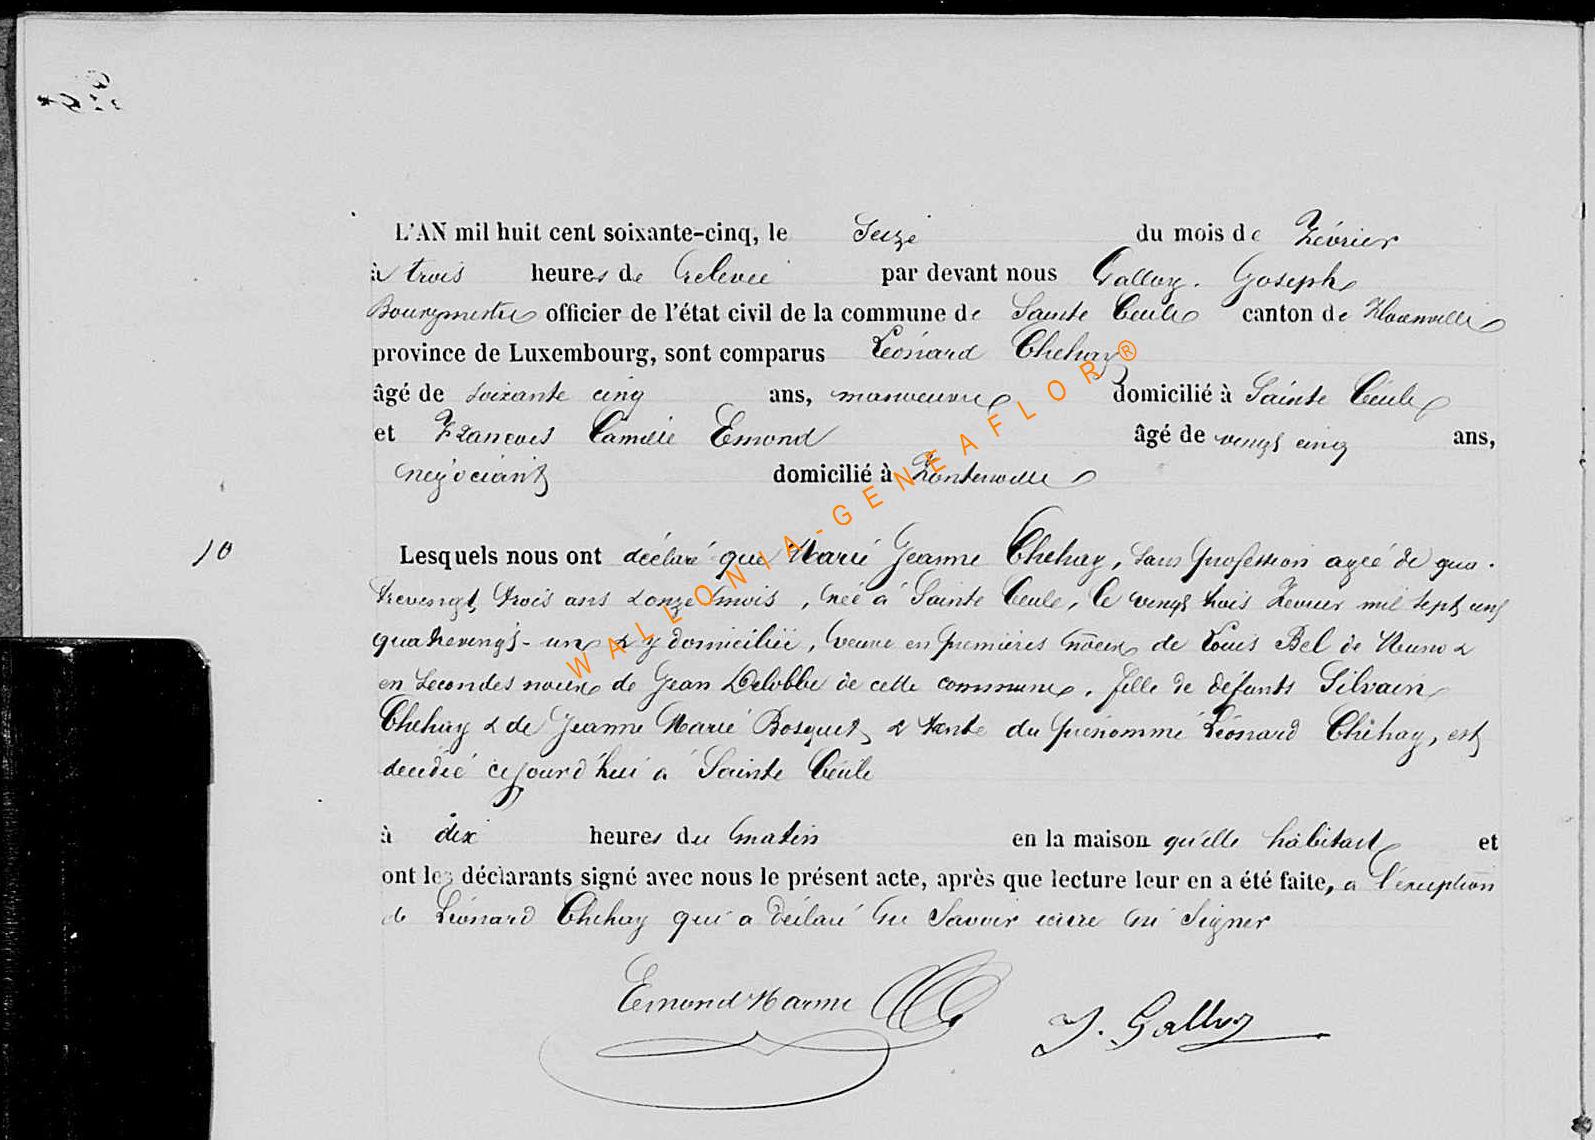 L'AN mil huit cent soixante-cinq, le Seize du mois de Février
à trois heures de relevée par devant nous Galloy. Joseph
Bourgmestre officier de l'état civil de la commune de Sainte Cécile canton de Florenville
province de Luxembourg, sont comparus Léonard Chéhay
âgé de soixante cinq ans, manoeuvre domicilié à Sainte Cécile
et François Camille Emond âgé de vingt cinq ans,
négociant domicilié à Fontenoille
10
Lesquels nous ont déclaré que Marie Jeanne Chéhay, sans profession agée de qua
trevingt trois ans & onze mois, née à Sainte Cécile, le vingt trois Février mil sept cent
quatrevingt-un & y domiciliée, veuve en premières noces de Louis Bel de Muno &
en secondes noces de Jean Delobbe de cette commune, fille de défunts Silvain
Chéhay & de Jeanne Marie Bosquet, & tante du prénommé Léonard Chéhay, est
décédée cejourd'hui à Sainte Cécile
à dix heures du matin en la maison qu'elle habitait et
ont les déclarants signé avec nous le présent acte, après que lecture leur en a été faite, à l'exception
de Léonard Chéhay qui a déclaré ne savoir écrire ni signer
Emond J. Galloy
WALLONIA-GENEAFLOR®